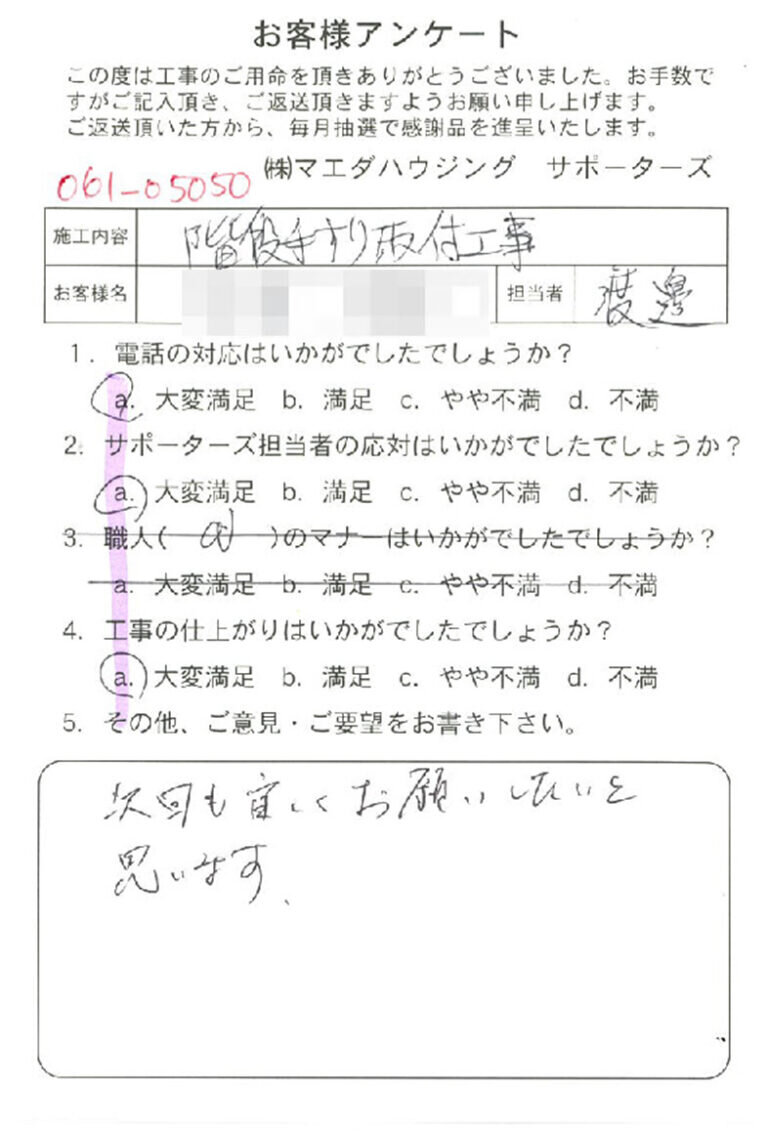 お客様アンケート
この度は工事のご用命を頂きありがとうございました。お手数で
すがご記入頂き、ご返送頂きますようお願い申し上げます。
ご返送頂いた方から、毎月抽選で感謝品を進呈いたします。
㈱マエダハウジング サポーターズ
061-05050
施工内容 階段手すり取付工事
お客様名 担当者 渡邊
1. 電話の対応はいかがでしたでしょうか?
a. 大変満足 b. 満足 c. やや不満 d. 不満
2. サポーターズ担当者の応対はいかがでしたでしょうか?
a. 大変満足 b. 満足 c. やや不満 d. 不満
3. 職人( )のマナーはいかがでしたでしょうか?
a. 大変満足 b. 満足 c. やや不満 d. 不満
4. 工事の仕上がりはいかがでしたでしょうか?
a. 大変満足 b. 満足 c. やや不満 d. 不満
5. その他、ご意見・ご要望をお書き下さい。
次回も宜しくお願いしたいと
思います、